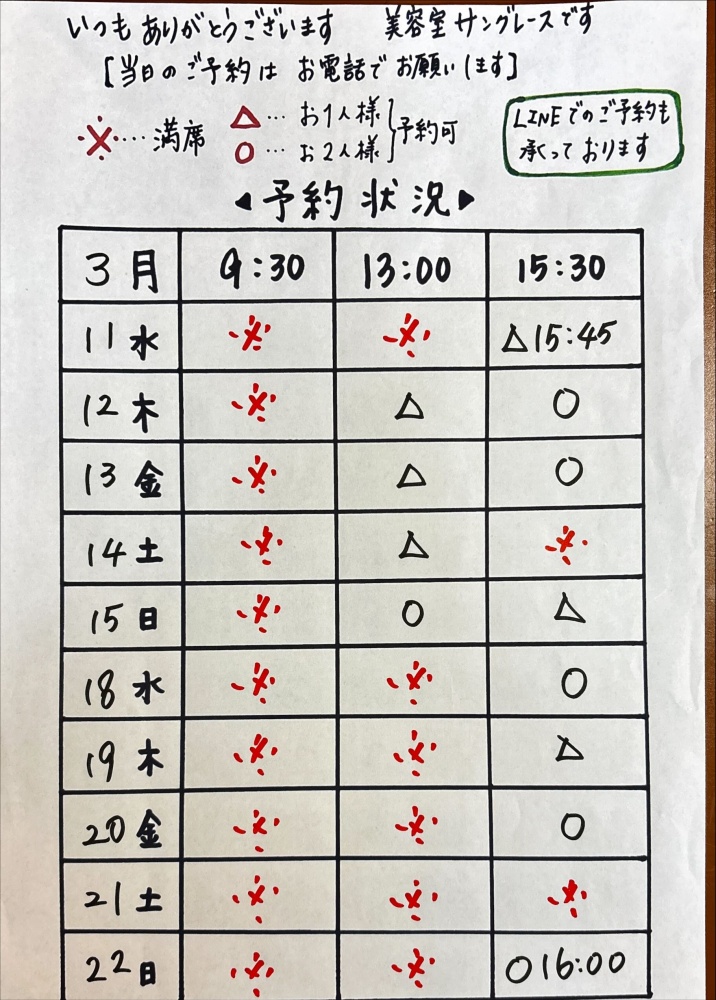 いつもありがとうございます 美容室サングレースです
[当日のご予約は お電話でお願いします]
※…満席
△…お1人様
○…お2人様
予約可
LINEでのご予約も
承っております
◀予約状況▶
3月 9:30 13:00 15:30
11水 ※ ※ △15:45
12木 ※ △ ○
13金 ※ △ ○
14土 ※ △ ※
15日 ※ ○ △
18水 ※ ※ ○
19木 ※ ※ △
20金 ※ ※ ○
21土 ※ ※ ※
22日 ※ ※ ○16:00